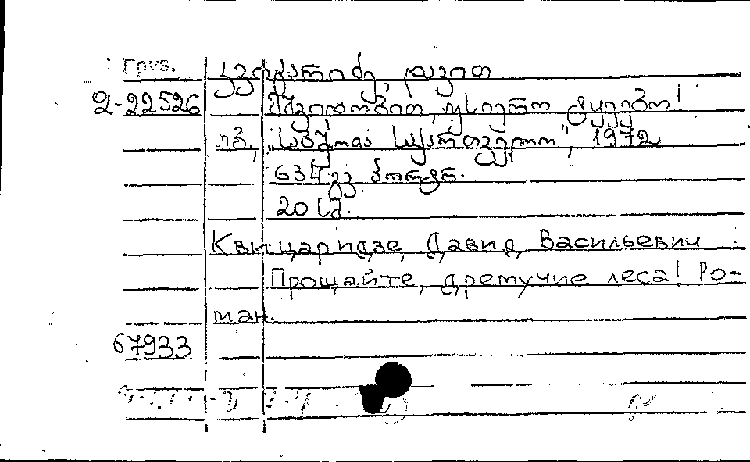 груз.
კვიცარიძე, დავით
2-22526 მშვიდობით, უსიერო ტყეებო!
თბ., "საბჭოთა საქართველო", 1972
634 გვ. პორტრ.
20 სმ.
Квицаридзе, Давид Васильевич
Прощайте, дремучие леса! Ро-
ман.
67933